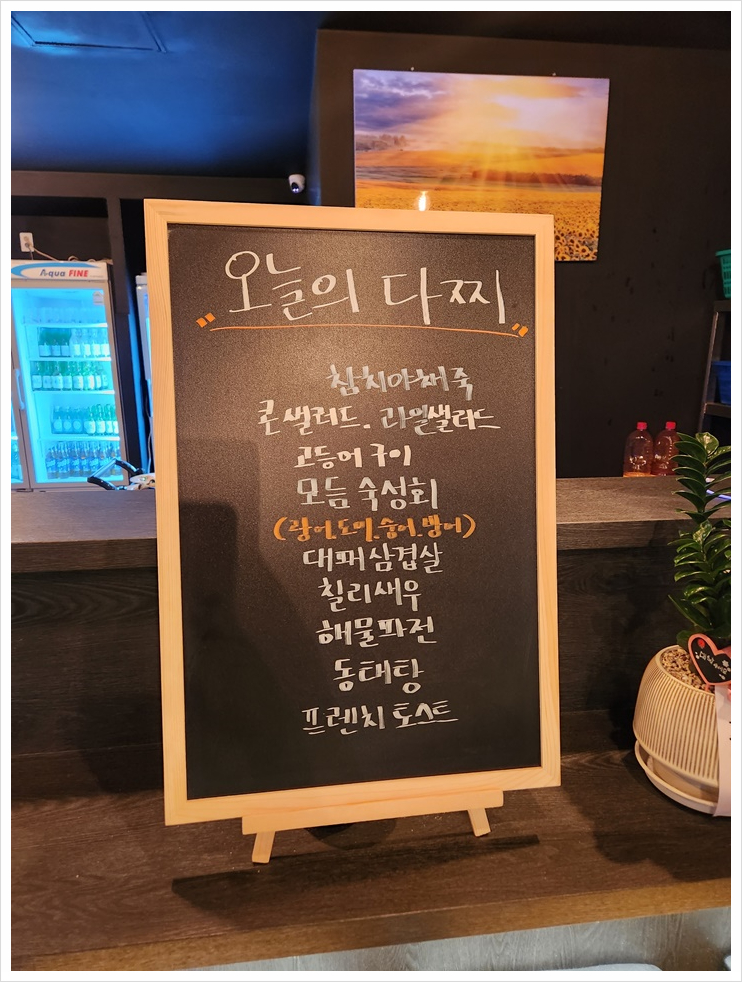 A-qua FINE
"오늘의 다찌"
참치야채죽
콘샐러드. 과일샐러드
고등어 구이
모듬 숙성회
(광어.도미.숭어.방어)
대패삼겹살
칠리새우
해물파전
동태탕
프렌치 토스트